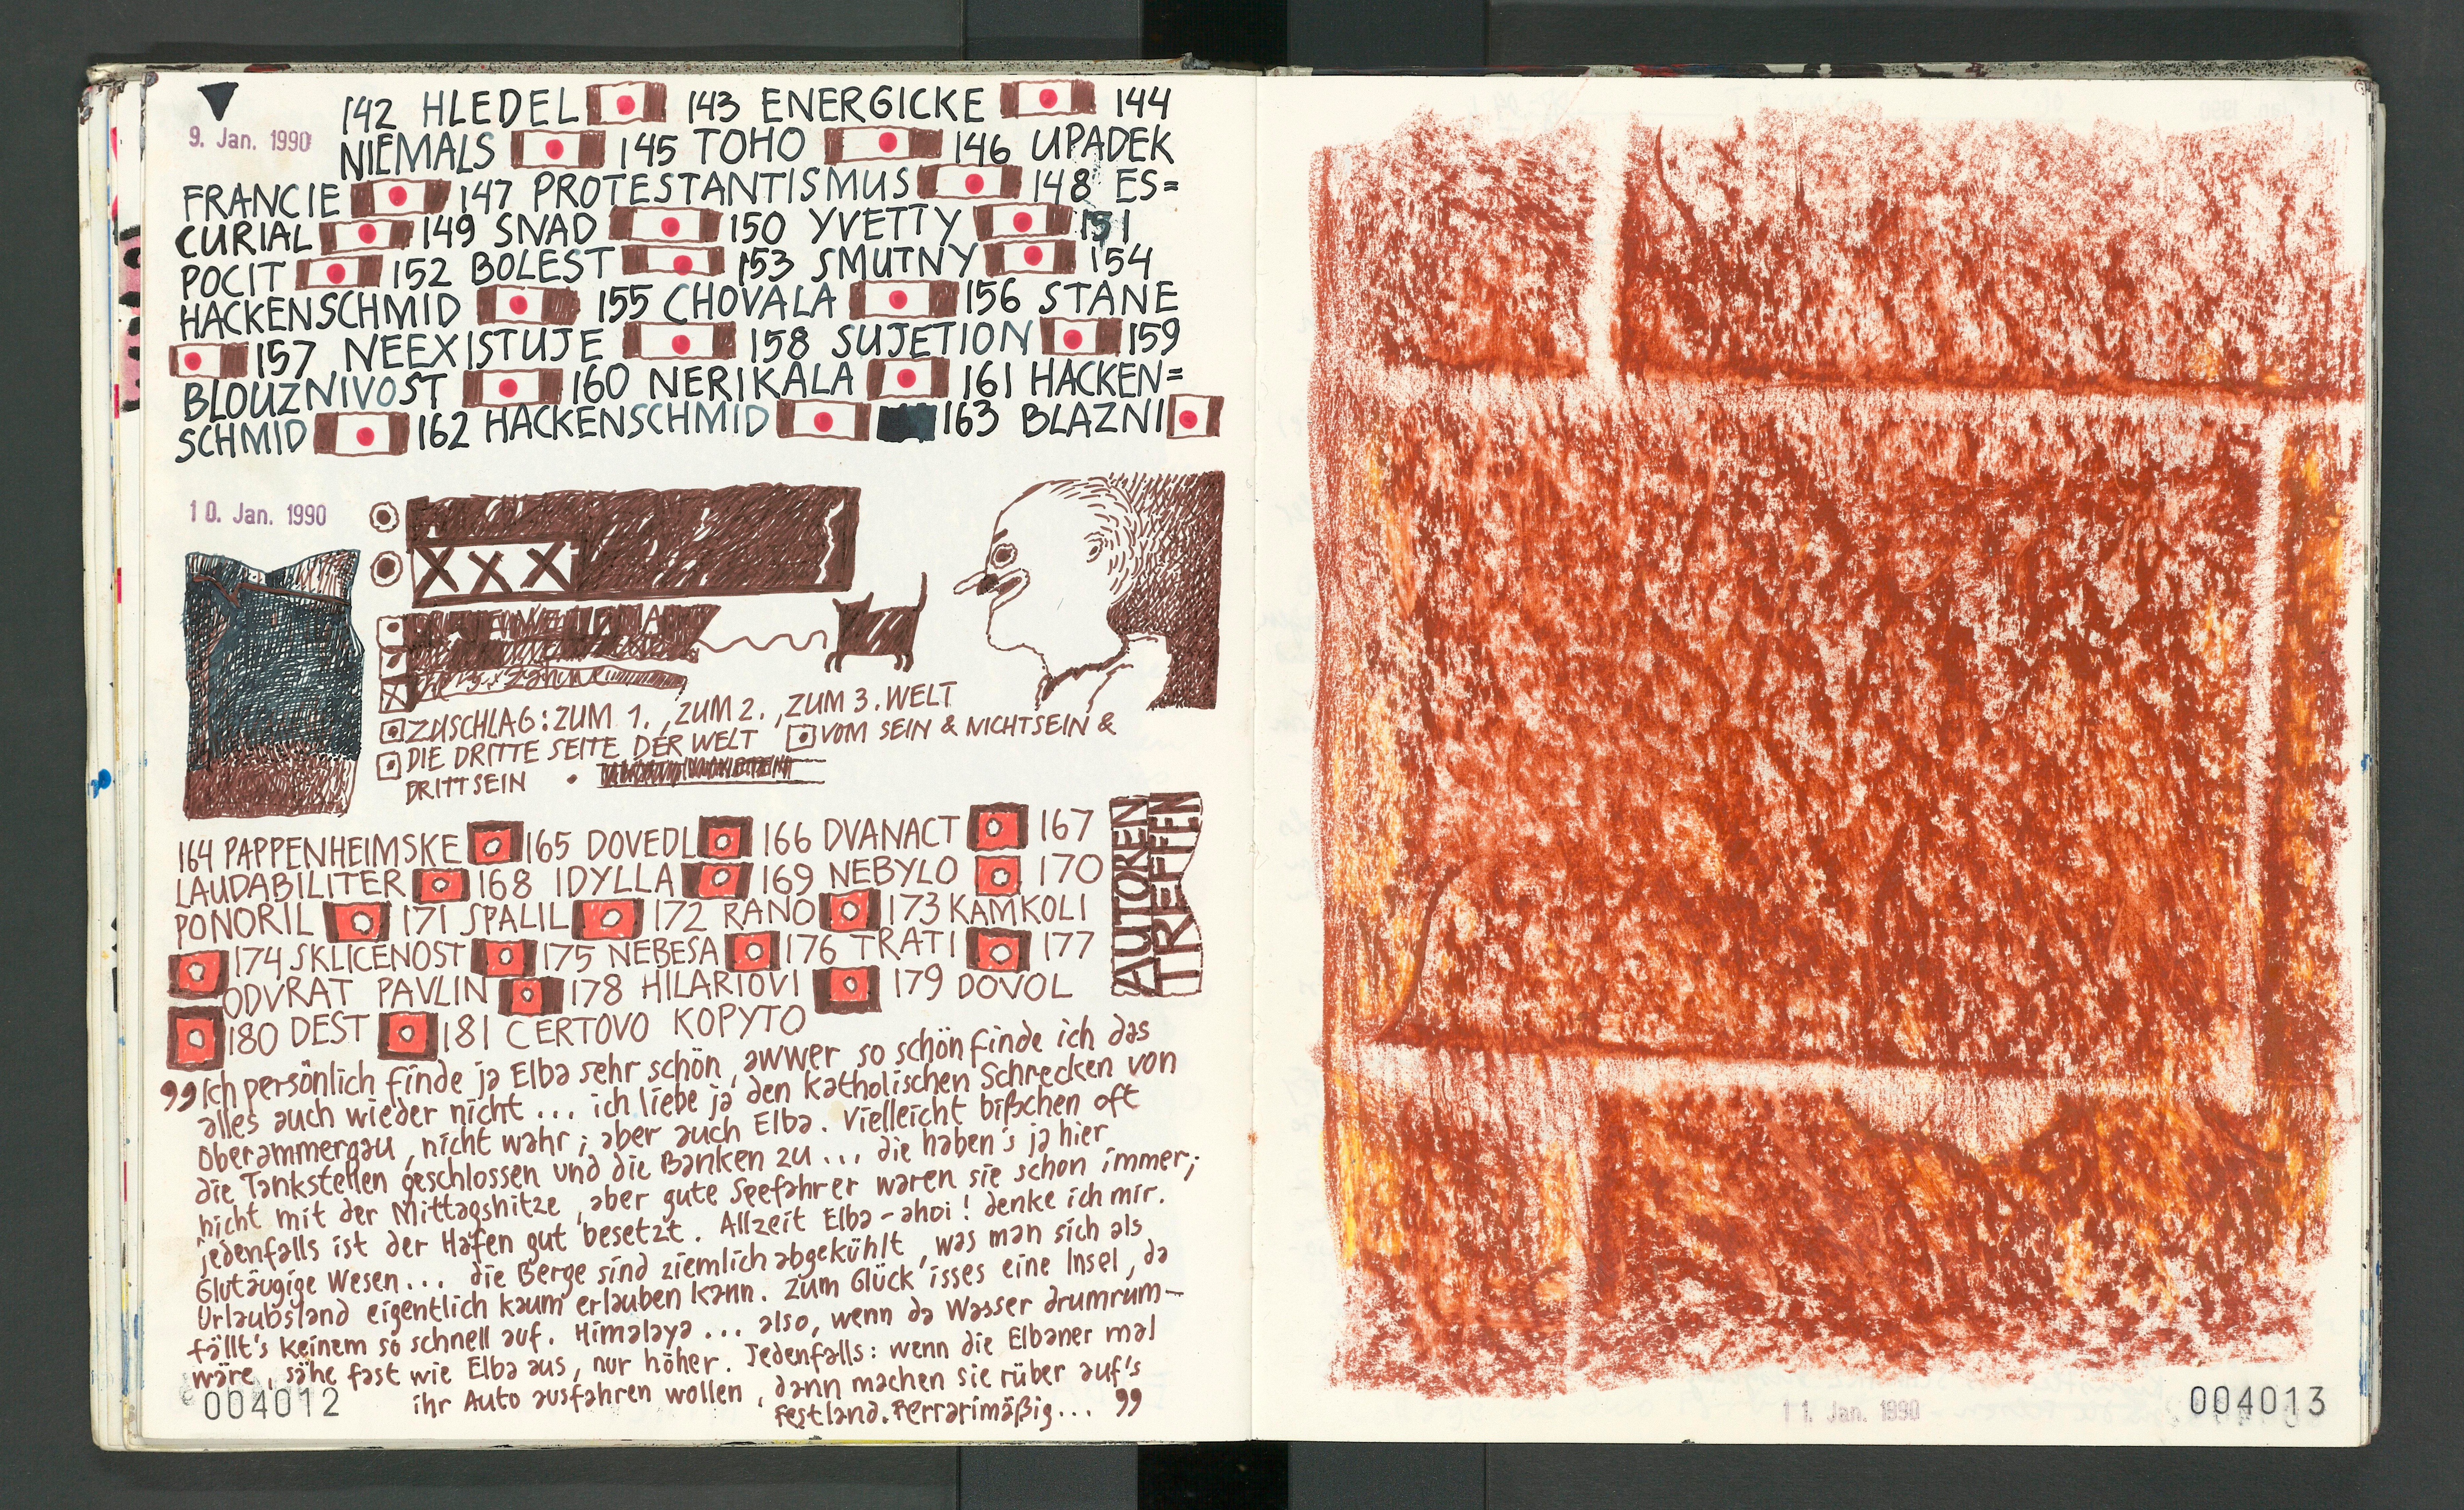 9. Jan. 1990
142 HLEDEL 143 ENERGICKE 144
NIEMALS 145 TOHO 146 UPADEK
FRANCIE 147 PROTESTANTISMUS 148 ES=
CURIAL 149 SNAD 150 YVETTY 151
POCIT 152 BOLEST 153 SMUTNY 154
HACKENSCHMID 155 CHOVALA 156 STANE
157 NEEXISTUJE 158 SUJETION 159
BLOUZNIVOST 160 NERIKALA 161 HACKEN=
SCHMID 162 HACKENSCHMID 163 BLAZNI
10. Jan. 1990
XXX
ZUSCHLAG: ZUM 1., ZUM 2., ZUM 3. WELT
DIE DRITTE SEITE DER WELT VOM SEIN & NICHTSEIN &
DRITTSEIN
AUTOREN
TREFFEN
164 PAPPENHEIMSKE 165 DOVEDL 166 DVANACT 167
LAUDABILITER 168 IDYLLA 169 NEBYLO 170
PONORIL 171 SPALIL 172 RANO 173 KAMKOLI
174 SKLICENOST 175 NEBESA 176 TRATI 177
ODVRAT PAVLIN 178 HILARIOVI 179 DOVOL
180 DEST 181 CERTOVO KOPYTO
"Ich persönlich finde ja Elba sehr schön, awwer so schön finde ich das
alles auch wieder nicht... ich liebe ja den katholischen Schrecken von
Oberammergau, nicht wahr; aber auch Elba. Vielleicht bißchen oft
die Tankstellen geschlossen und die Banken zu... die haben's ja hier
nicht mit der Mittagshitze, aber gute Seefahrer waren sie schon immer;
jedenfalls ist der Hafen gut besetzt. Allzeit Elba-ahoi! denke ich mir.
Glutäugige Wesen... die Berge sind ziemlich abgekühlt, was man sich als
Urlaubsland eigentlich kaum erlauben kann. Zum Glück isses eine Insel, da
fällt's keinem so schnell auf. Himalaya... also, wenn da Wasser drumrum-
wäre, sähe fast wie Elba aus, nur höher. Jedenfalls: wenn die Elbaner mal
ihr Auto ausfahren wollen, dann machen sie rüber auf's
Festland. Ferrarimäßig..."
004012
11. Jan. 1990
004013